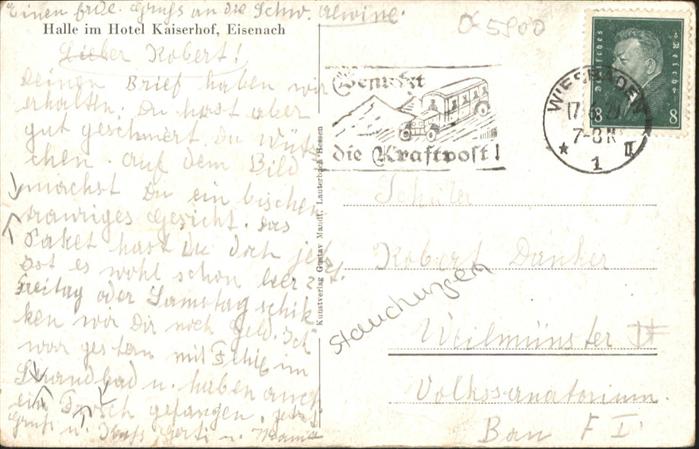 Einen frdl. Gruß an die Schw. Alwine.
Halle im Hotel Kaiserhof, Eisenach
Lieber Robert!
Deinen Brief haben wir
erhalten. Du hast aber
gut geschmiert Du
chen. Auf dem Bild
machst Du ein bischen
trauriges Gesicht. Das
Paket hast Du doch jetzt.
Ist es wohl schon leer?
Freitag oder Samstag schik
ken wir Dir noch Geld. Ich
war gestern mit im
Strandbad u. haben auch
ein Frosch gefangen.
Gruß u. Kuß, Gerti u. Mama
Kunstverlag Gustav Mandt, Lauterbach Hessen
5800
Benutzt
die Kraftpost!
WIESBADEN
17
7-8 N
* 1 II
Deutsches Reich
8 8
Schüler
Robert Danker
Stauchungen
Weilmünster
Volkssanatorium.
Bau F I.